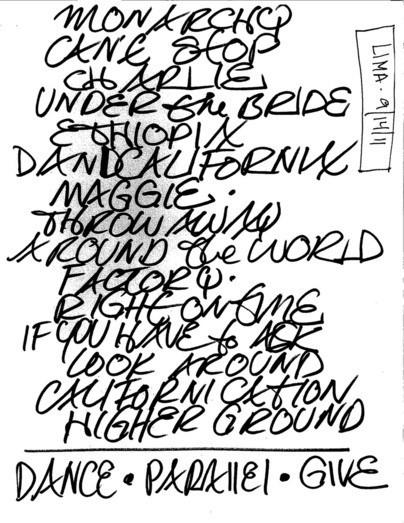 MONARCHY
CAN'T STOP
CHARLIE
UNDER the BRIDE
ETHIOPIA
DANI CALIFORNIA
MAGGIE.
THROW AWAY
AROUND the WORLD
FACTORY.
RIGHT ON TIME
IF YOU HAVE to ASK
LOOK AROUND
CALIFORNICATION
HIGHER GROUND
DANCE • PARAllEl • GIVE
LIMA. 9/14/11